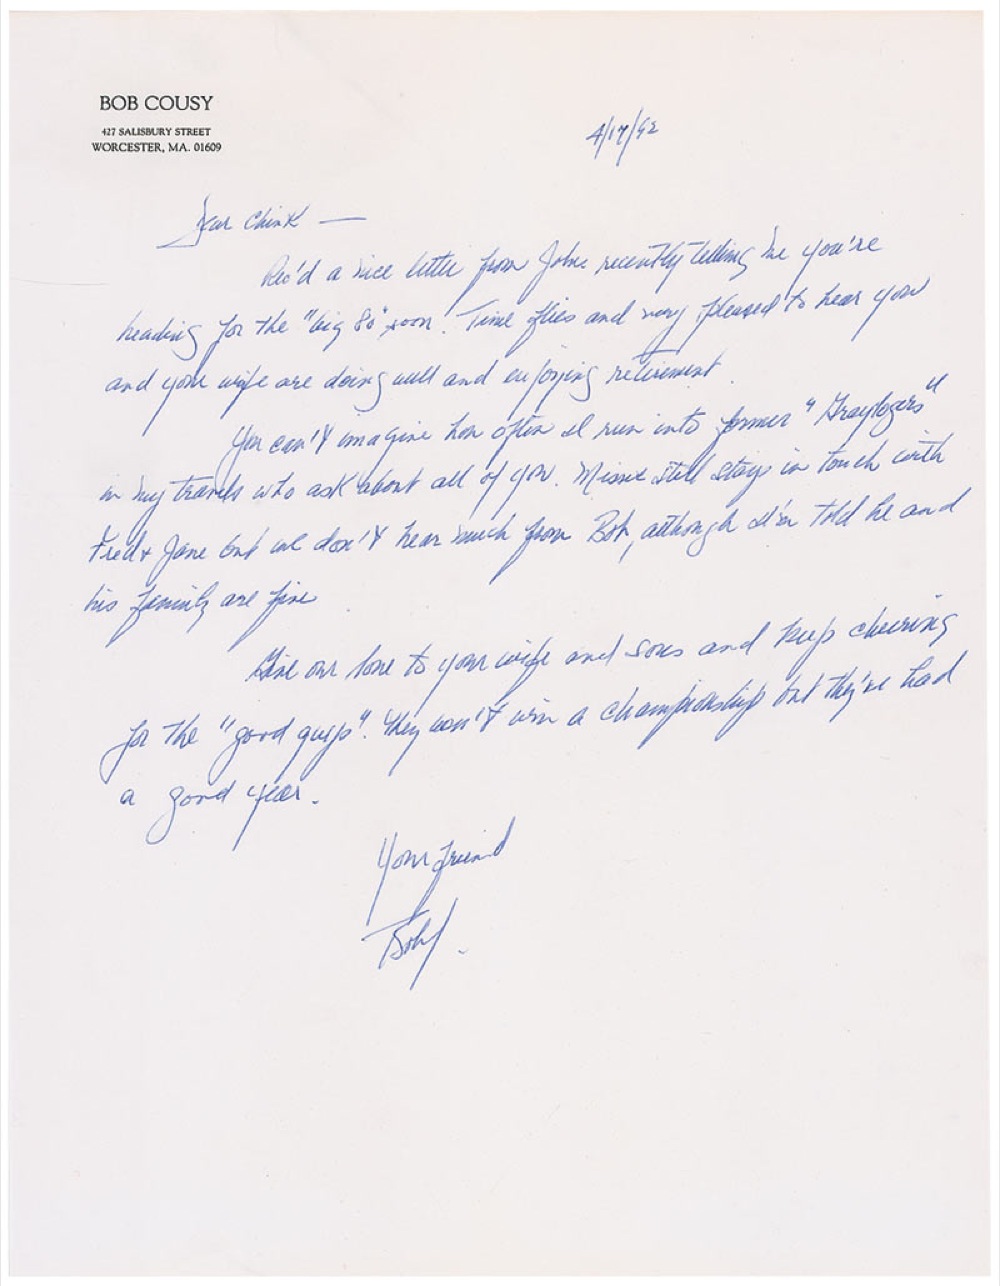 BOB COUSY
427 SALISBURY STREET
WORCESTER, MA. 01609
4/17/92
Dear Chink —
Rec'd a nice letter from John recently telling me you're
heading for the "big 80" soon. Time flies and very pleased to hear you
and your wife are doing well and enjoying retirement.
You can't imagine how often I run into former "Graylogers"
in my travels who ask about all of you. Missie still stays in touch with
Fred & Jane but we don't hear much from Bob, although I'm told he and
his family are fine.
Give our love to your wife and sons and keep cheering
for the "good guys". They won't win a championship but they've had
a good year.
Your friend
Bob